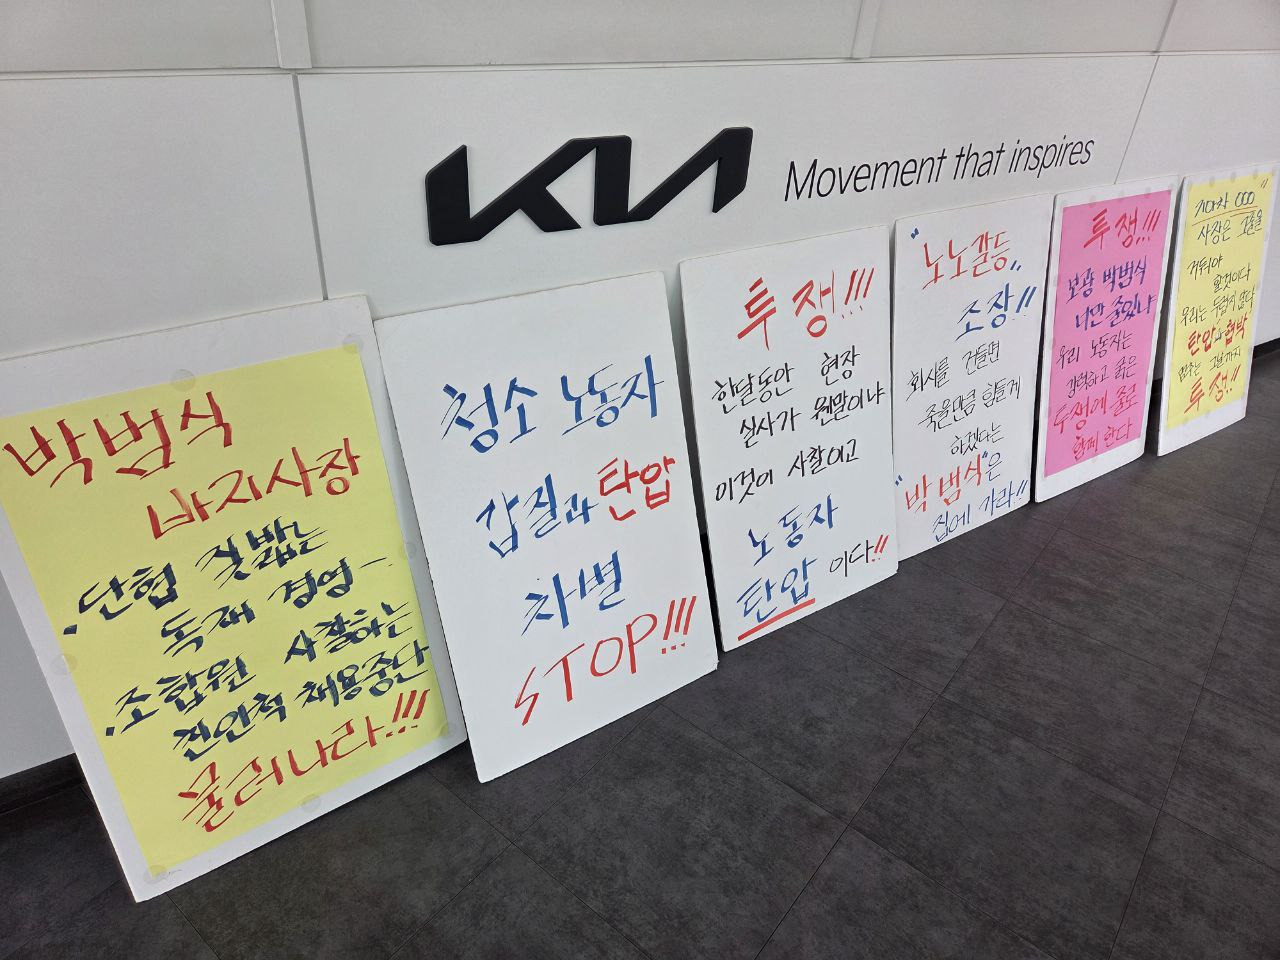 KIA
Movement that inspires
박범식
바지사장
.단협 짓밟는
독재 경영
.조합원 사찰하는
친안척 채용중단
물러나라!!!
청소 노동자
갑질과 탄압
차별
STOP!!!
투쟁!!!
한달동안 현장
실사가 웬말이냐
이것이 사찰이고
노동자
탄압 이다!!
"노노갈등"
조장!!
회사를 건들면
죽을만큼 힘들게
하겠다는
"박범식"은
집에 가라!!
투쟁!!!
보광 박범식
너만 줄있냐
우리 노동자는
강력하고 굵은
투쟁에 줄로
함께 한다
기아차 OOO"
사장은 고름을
거둬야
할것이다
우리는 두렵지 않다
탄압과 협박
멈추는 그날까지
투쟁!!